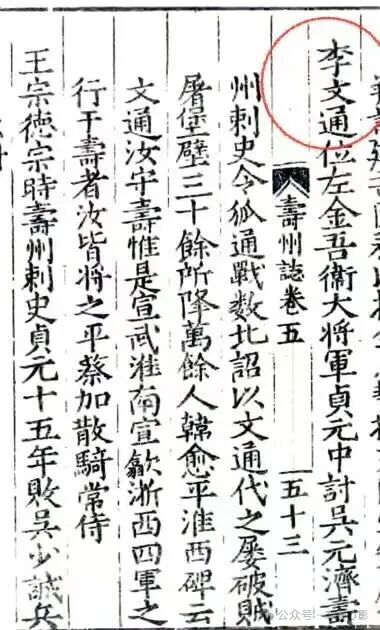 李文通位左金吾衛大將軍貞元中討吳元濟壽
壽州誌卷五
五十三
州刺史令狐通戰数北詔以文通代之屡破賊
屠堡壁三十餘所降萬餘人韓愈平淮西碑云
文通汝守壽惟是宣武淮南宣歙淅西四軍之
行于壽者汝皆將之平蔡加散騎常侍
王宗德宗時壽州刺史貞元十五年敗吳少誠兵
公众号